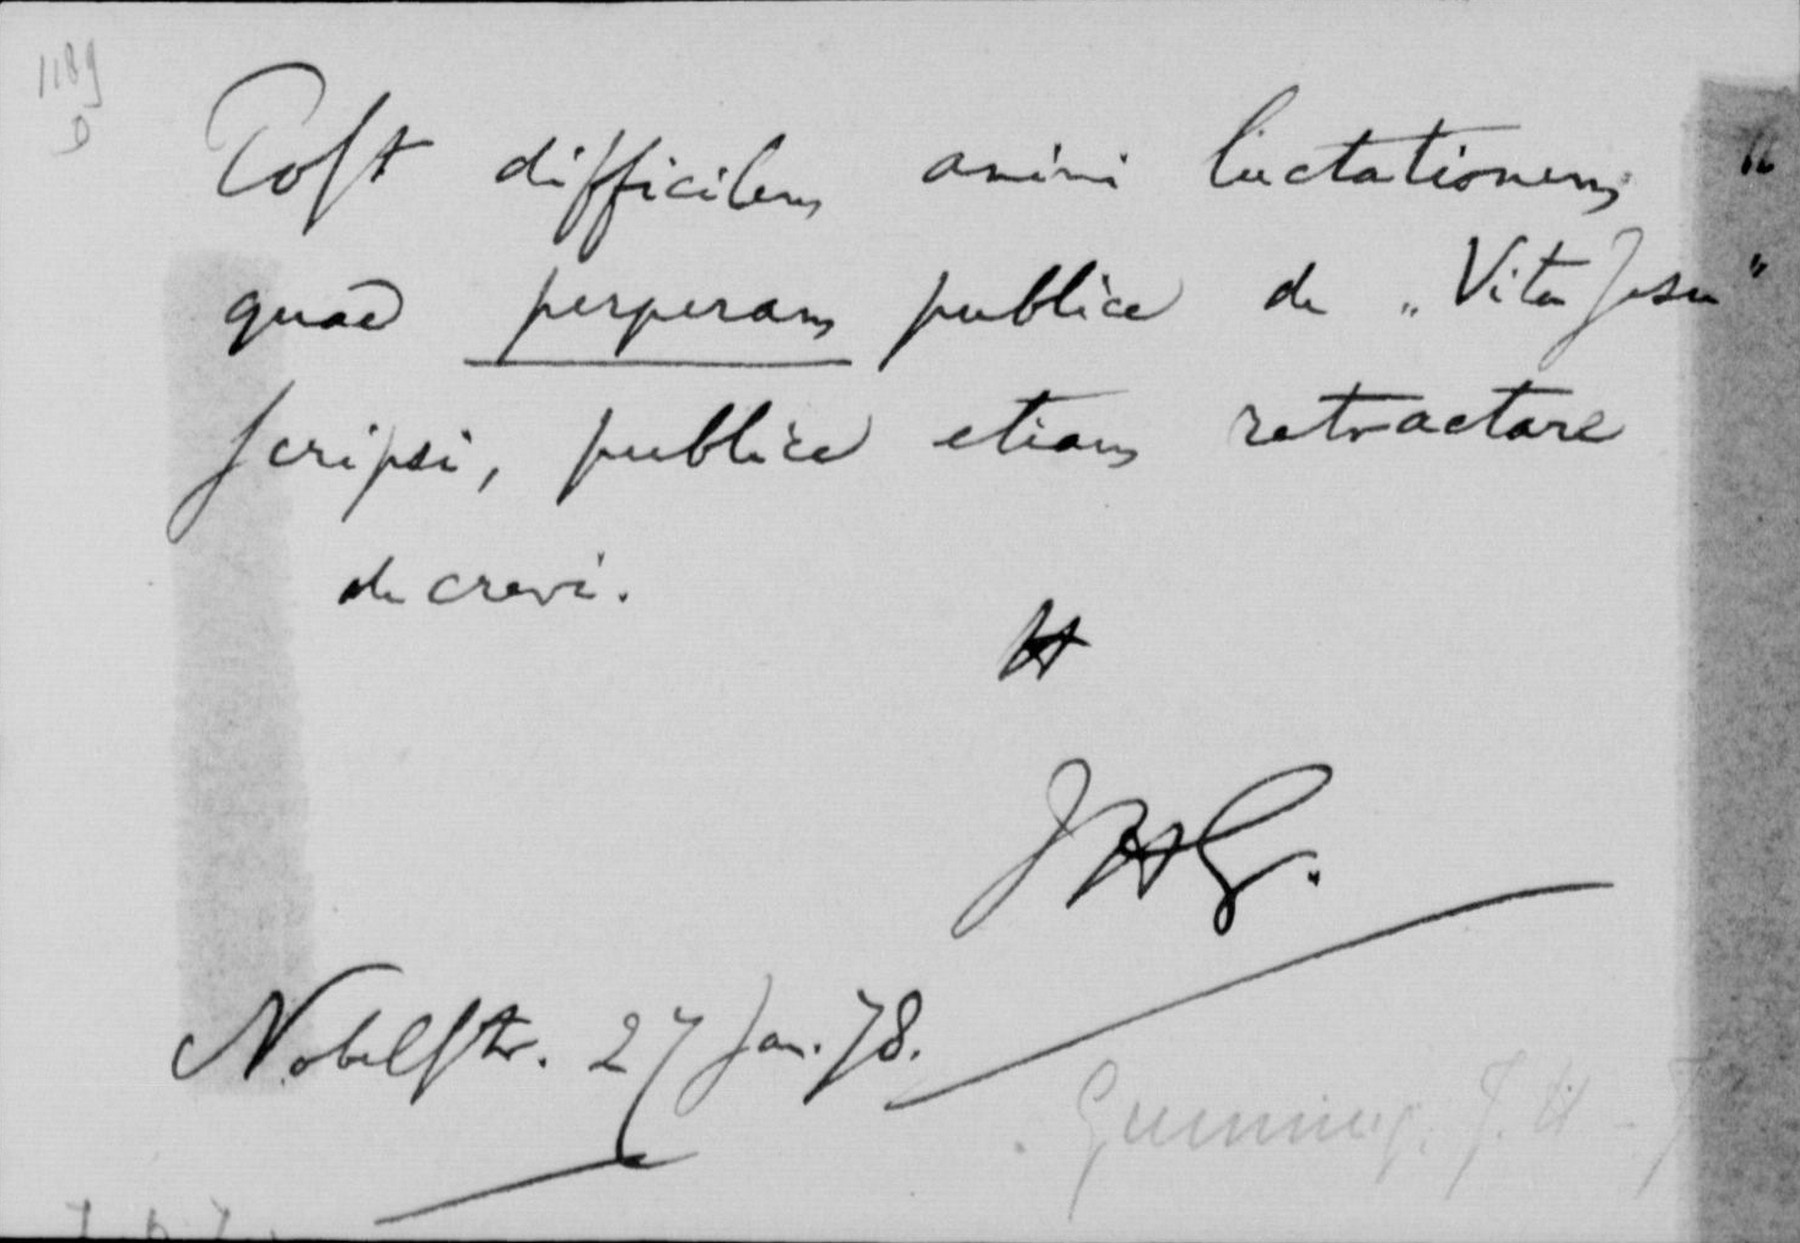 1189
D
Post difficilem animi luctationem
quae perperam publice de „Vita Jesu"
scripsi, publice etiam retractare
decrevi.
H
JHG.
Nobelstr. 27 Jan. 78.
Gunning, J. H. - J